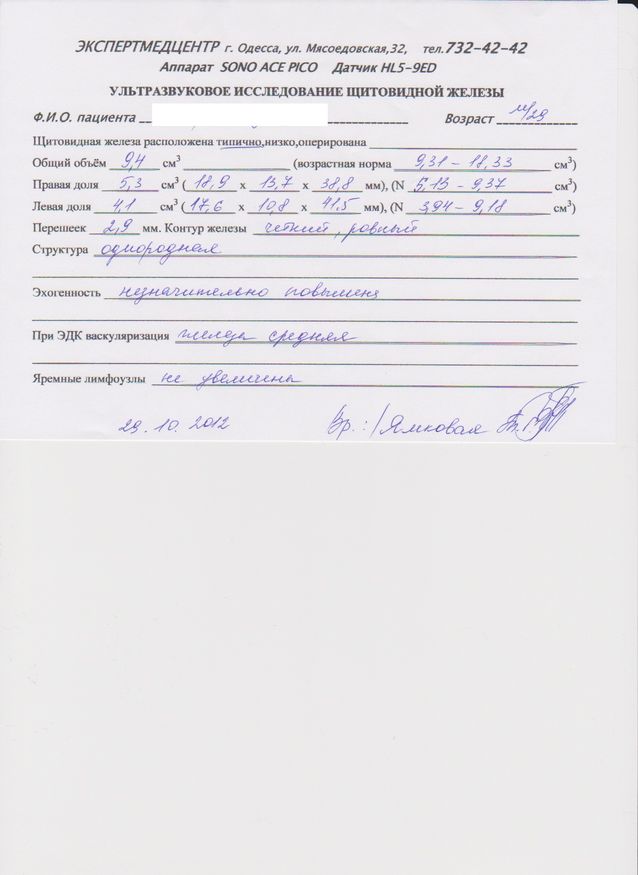 ЭКСПЕРТМЕДЦЕНТР г. Одесса, ул. Мясоедовская,32, тел.732-42-42
Аппарат SONO ACE PICO Датчик HL5-9ED
УЛЬТРАЗВУКОВОЕ ИССЛЕДОВАНИЕ ЩИТОВИДНОЙ ЖЕЛЕЗЫ
Ф.И.О. пациента Возраст м/29
Щитовидная железа расположена типично,низко,оперирована
Общий объём 9,4 см³ (возрастная норма 9,31 – 18,33 см³)
Правая доля 5,3 см³ ( 18,9 х 13,7 х 38,8 мм), (N 5,13 – 9,37 см³)
Левая доля 4,1 см³ ( 17,6 х 10,8 х 41,5 мм), (N 3,94 – 9,18 см³)
Перешеек 2,9 мм. Контур железы четкий, ровный
Структура однородная
Эхогенность незначительно повышена
При ЭДК васкуляризация железы средняя
Яремные лимфоузлы не увеличены
29.10.2012 Вр.: /Ямковая